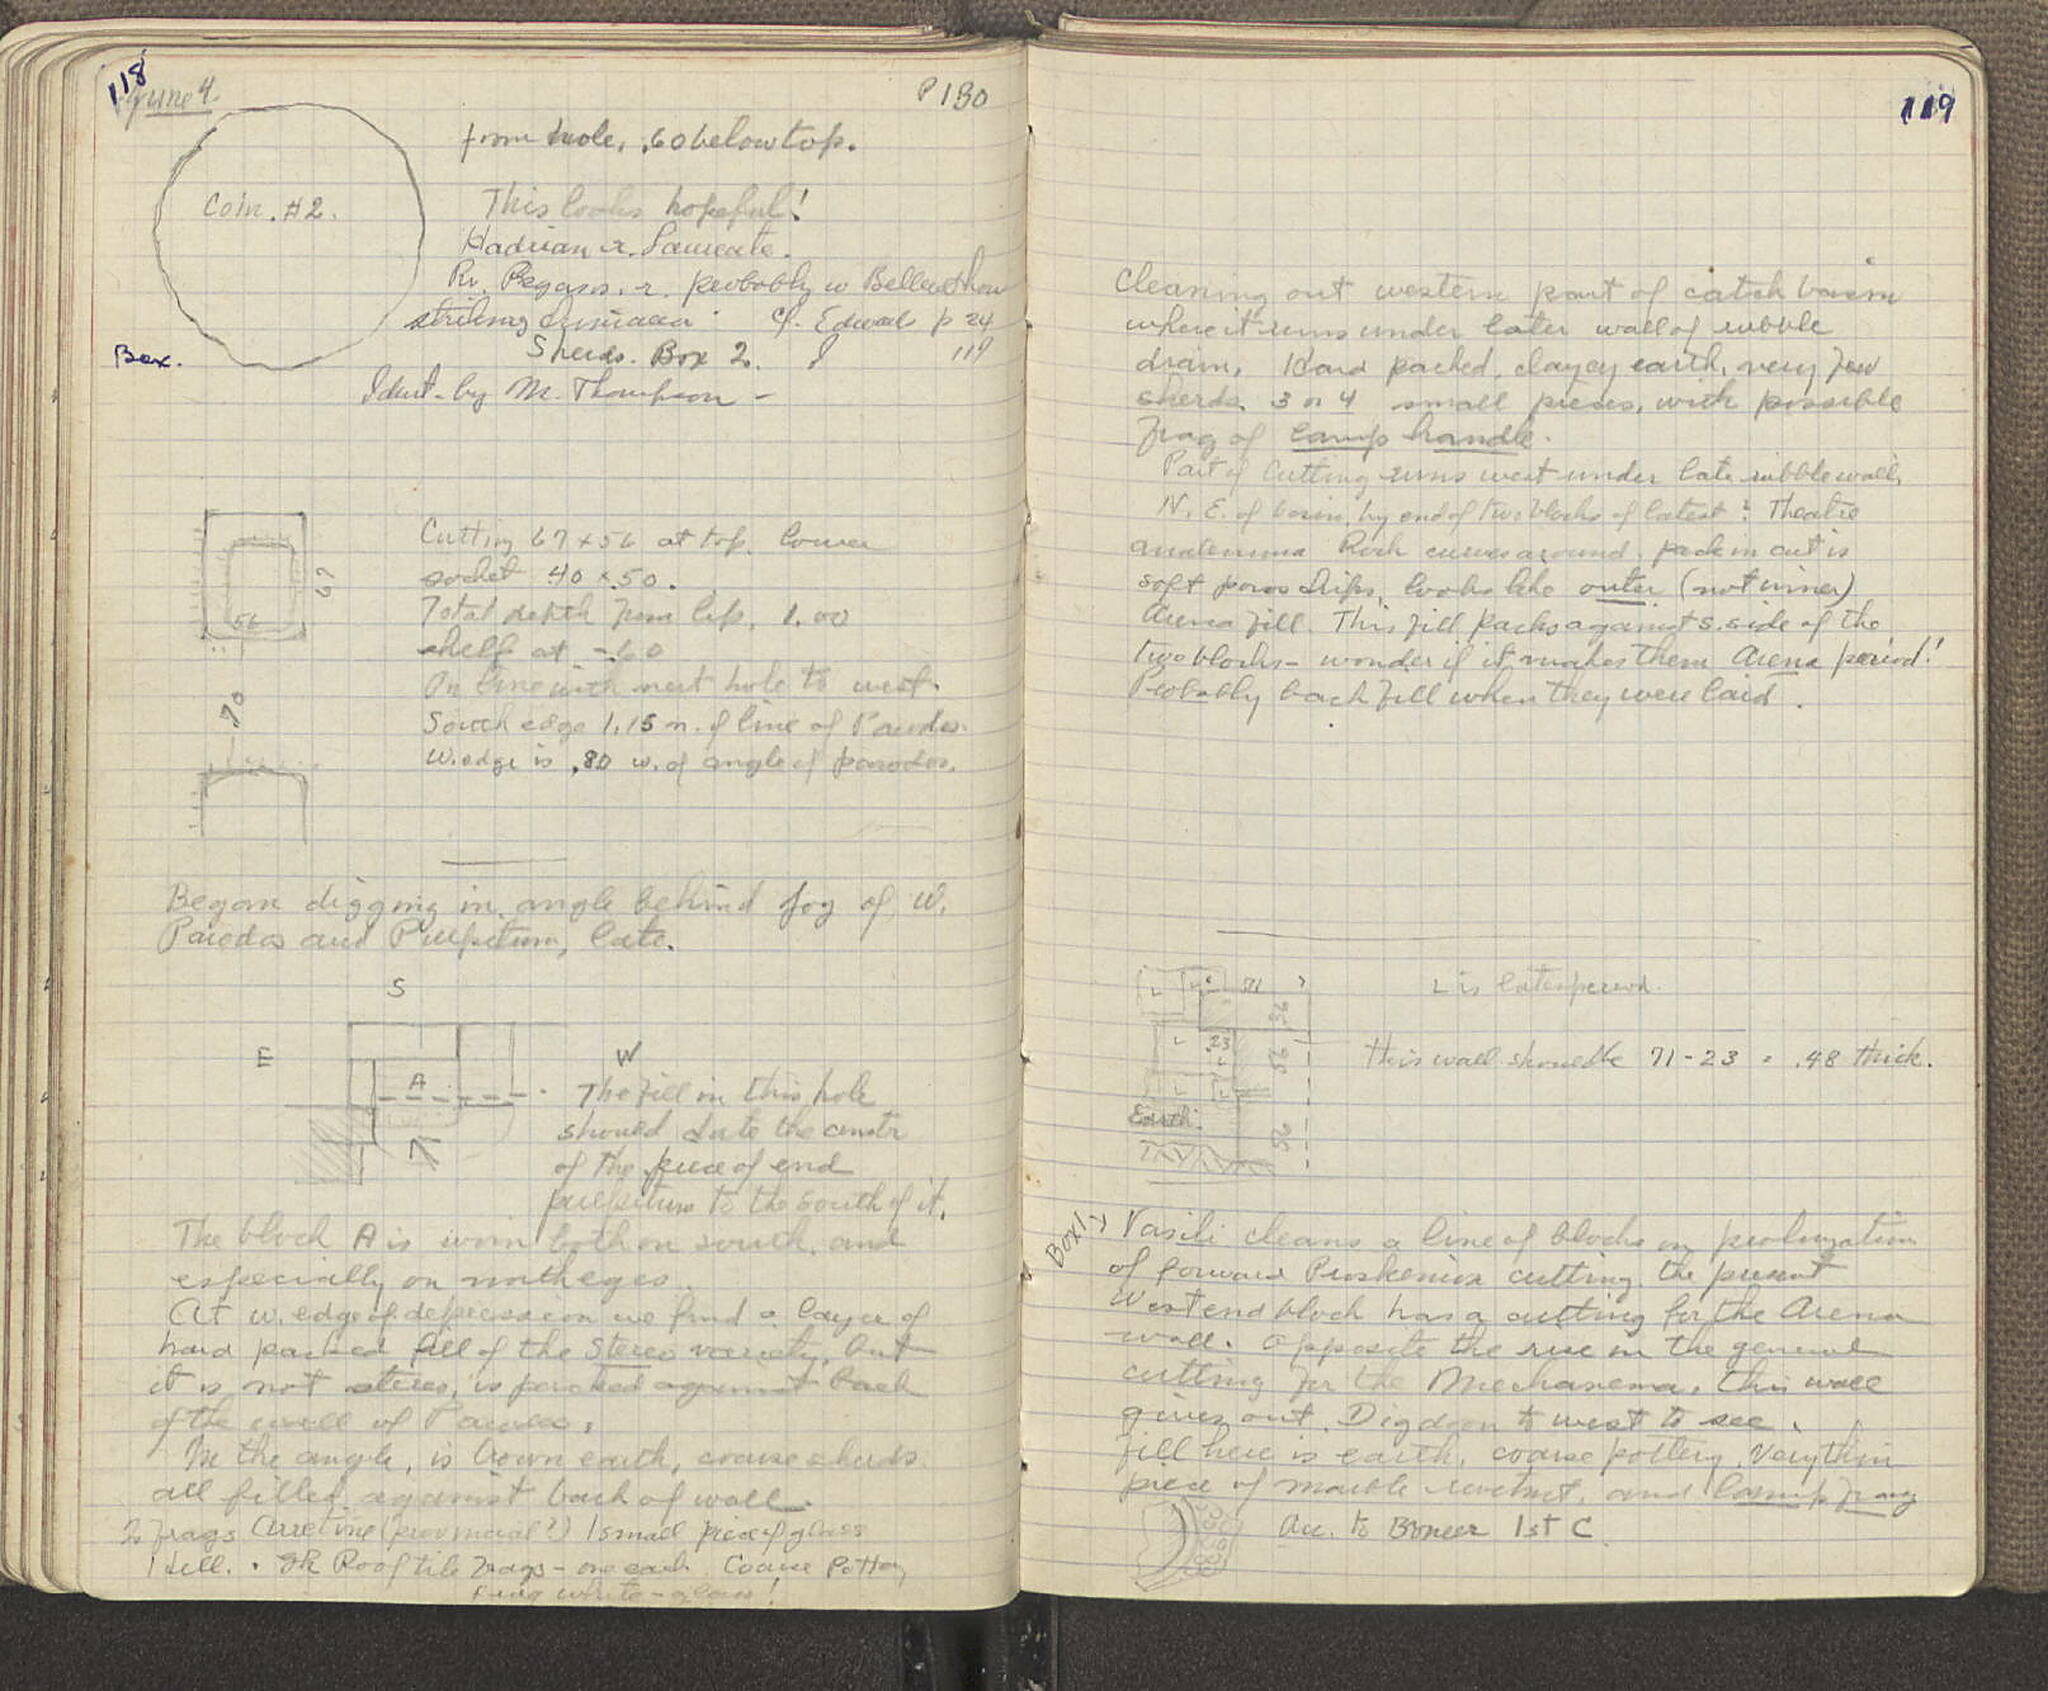 118
June 4.
P 130
from hole, .60 below top.
Coin. #2.
This looks hopeful!
Hadrian r. Laureate.
Rv. Pegasos. r. probably w Bellerophon
striking Chimaera. Cf. Edwards p 24
Box.
Sherds. Box 2.
119
Ident. by M. Thompson -
Cutting 67 x 56 at top. lower
socket .40 x .50.
67
56
Total depth from lip, 1.00
shelf at -.60
On line with next hole to west.
70
South edge 1.15 n. of line of Parodos.
W. edge is .80 w. of angle of parodos.
Began digging in angle behind jog of W.
Parodos and Pulpitum, late.
S
E
W
A
The fill in this hole
should date the constr
of the piece of end
pulpitum to the south of it.
The block A is worn both on south, and
especially on north edges.
At w. edge of depression we find a layer of
hard packed fill of the Stereo variety, but
it is not stereo, is packed against back
of the wall of Parodos.
In the angle, is brown earth, coarse sherds
all filled against back of wall.
2 frags Arretine (provincial?) 1 small piece of glass
Roof tile frags - one each Coarse Pottery
white - glass!
119
Cleaning out western part of catch basin
where it runs under later wall of rubble
drain. Hard packed, clayey earth, very few
sherds. 3 or 4 small pieces, with possible
frag of lamp handle.
Part of cutting runs west under late rubble wall,
N. E. of basin, by end of two blocks of latest? Theatre
analemma Rock curves around. pack in cut is
soft poros chips, looks like outer (not inner)
Arena fill. This fill packs against S. side of the
two blocks - wonder if it makes them Arena period!
Probably back fill when they were laid.
L is later period.
L
71
36
L
23
L
56
This wall should be 71 - 23 = .48 thick.
L
L
Earth.
56
Box 1 → Vasili cleans a line of blocks on prolongation
of forward Proskenion cutting. the present
West end block has a cutting for the Arena
wall. Opposite the rise in the general
cutting for the Mechanema, this wall
gives out. Dig down to west to see.
Fill here is earth, coarse pottery. Very thin
piece of marble revetmt, and lamp frag
Acc. to Broneer 1st C